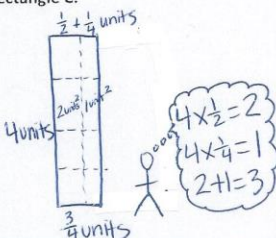 ectangle C.
1/2 + 1/4 units
2units² 1unit²
4units
3/4 units
4×1/2=2
4×1/4=1
2+1=3